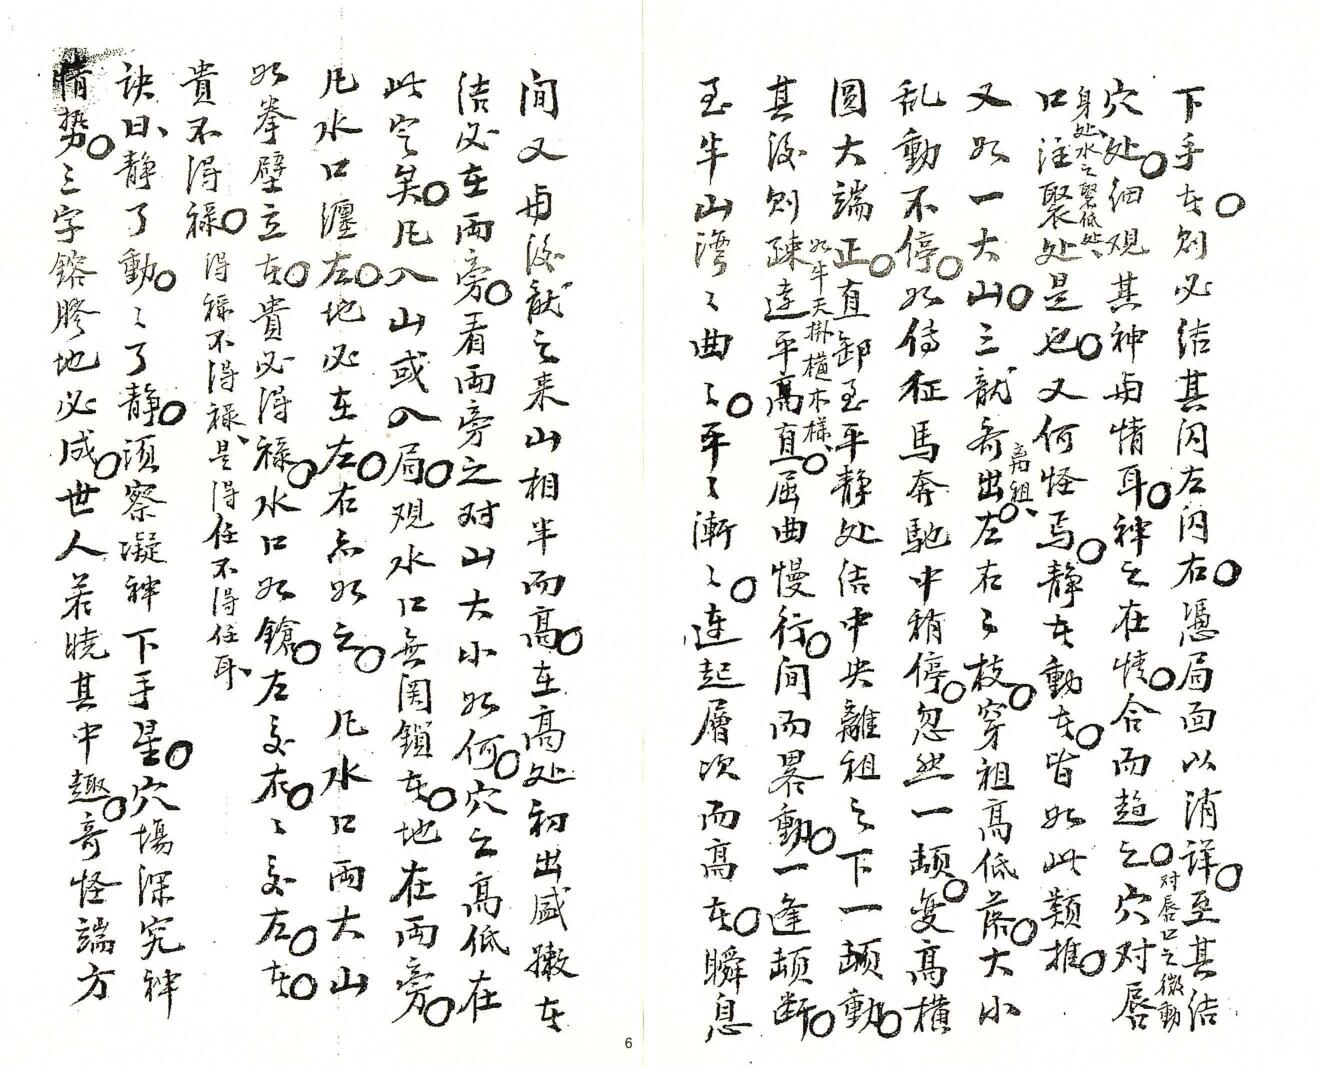 下手者則必結其閃左閃右憑局面以消詳至其结
穴处细观其神与情耳神之在情合而趋之穴对唇
对唇口之微動
身处水之聚低处
口注聚处是也又何怪焉静者動者皆如此類推
又如一大山三龍齐出左右之枝穿祖高低落大小
离祖
乱動不停如侍征馬奔馳中稍停忽然一頓变高横
圓大端正直卸至平静处结中央離祖之下一頓動
如牛天掛横木様
其後則踈逹平高直屈曲慢行間而畧動一逢頓断
至半山湾〻曲〻平〻漸〻連起層次而高者瞬息
間又与後龍之来山相半而高在高处初出盛嫩者
结必在两旁看两旁之对山大小如何穴之高低在
此定矣凡入山或入局观水口無関鎖者地在两旁
凡水口纒左地必在左右亦如之 凡水口两大山
如拳壁立者貴必得禄水口如鎗左交右〻交左者
貴不得禄
得禄不得禄是得任不得任耳
訣曰静了動〻了静須察凝神下手星穴塲深究神
情势三字鎔膠地必成世人若曉其中趣奇怪端方
6